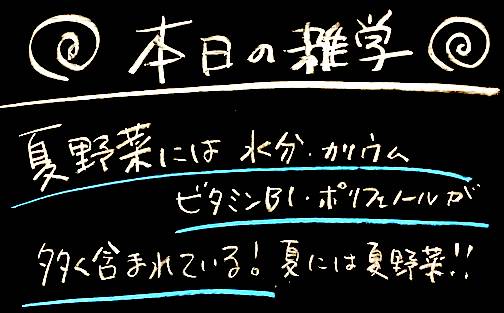 本日の雑学
夏野菜には 水分・カリウム
ビタミンB1・ポリフェノールが
多く含まれている! 夏には夏野菜!!